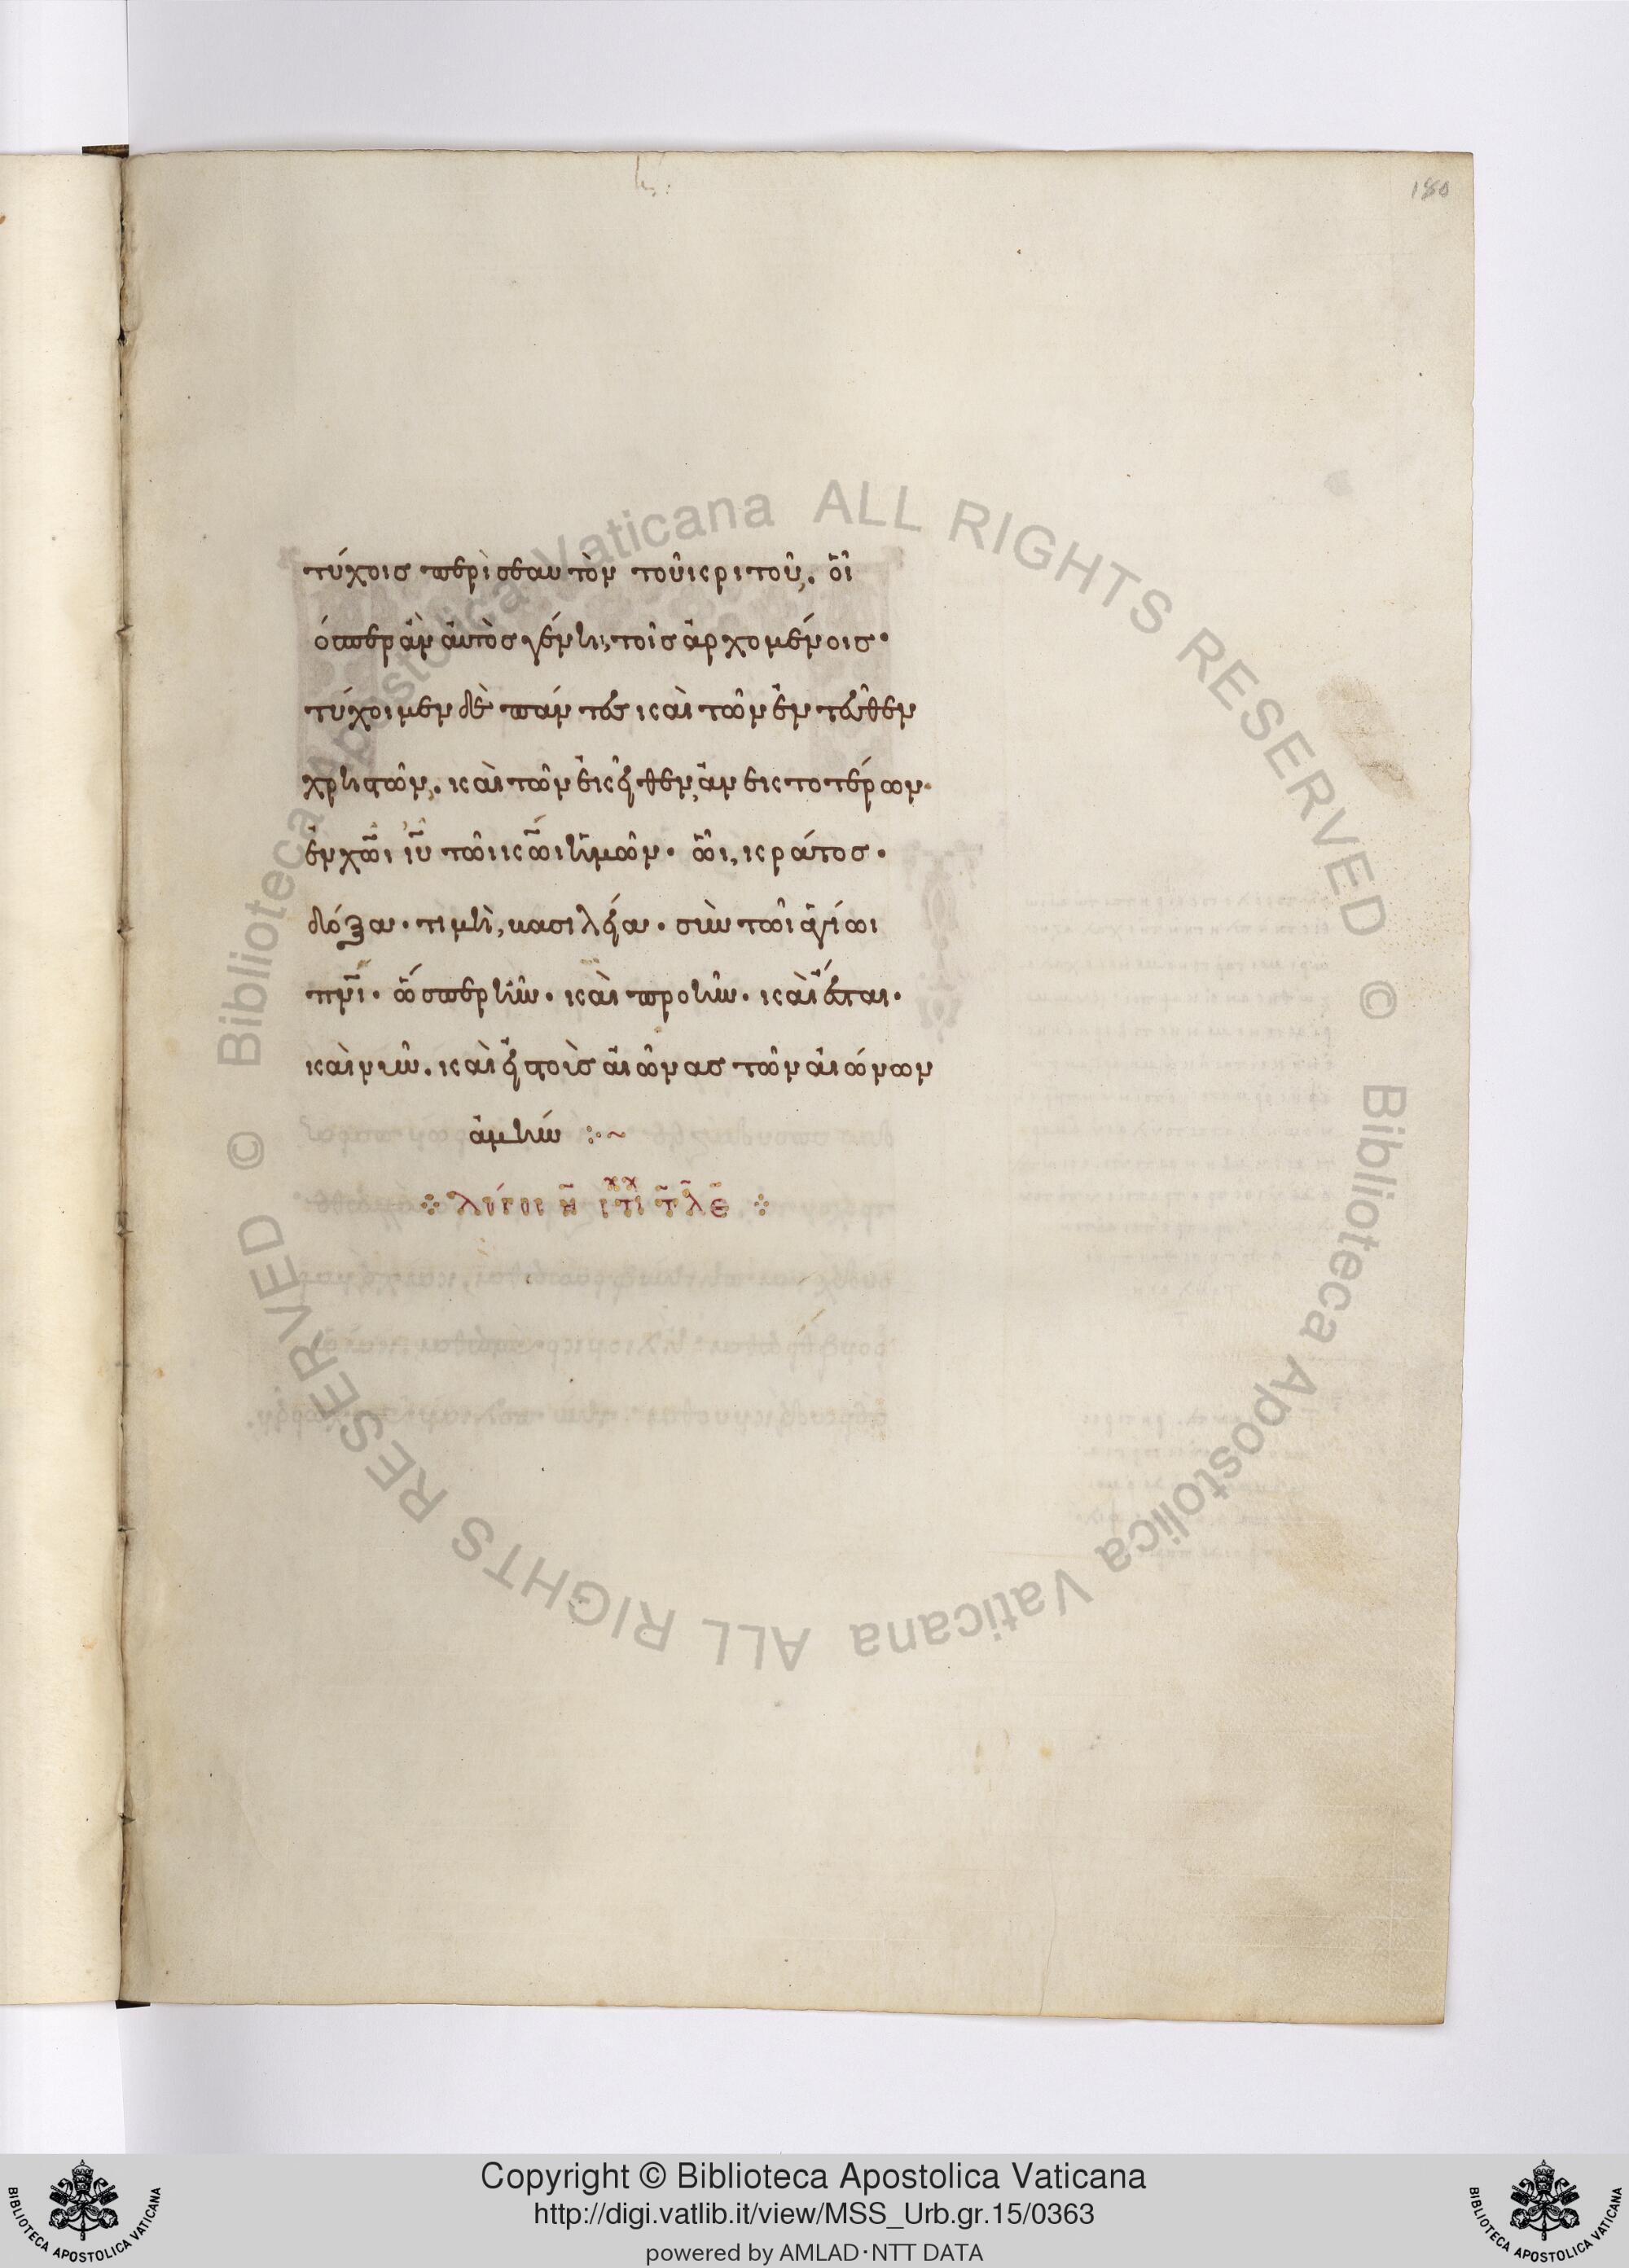 180
τύχοις περὶ σεαυτὸν τοῦ κριτοῦ, οἷ
όσπερ ἂν ἀυτὸς γένῃ, τοῖς ἀρχομένοις·
τύχοιμεν δὲ πάντες καὶ τῶν ἐντεῦθεν
χρηστῶν, καὶ τῶν ἐκεῖθεν ἀνεκτοτέρων·
ἐν χῶι ἰῦ τῶι κῶι ἡμῶν· ὧι, κράτος·
δόξα· τιμὴ, βασιλεία· σὺν τῶι ἁγίωι
πνι· ὥσπερ ἦν· καὶ προῆν· καὶ ἔσται·
καὶ νῦν. καὶ εἰς τοὺς αἰῶνας τῶν αἰώνων
ἀμήν :·~
λόγοι η
ALL RIGHTS RESERVED © Biblioteca Apostolica Vaticana ALL RIGHTS RESERVED © Biblioteca Apostolica Vaticana
Copyright © Biblioteca Apostolica Vaticana
http://digi.vatlib.it/view/MSS_Urb.gr.15/0363
powered by AMLAD·NTT DATA
BIBLIOTECA APOSTOLICA VATICANA
BIBLIOTECA APOSTOLICA VATICANA